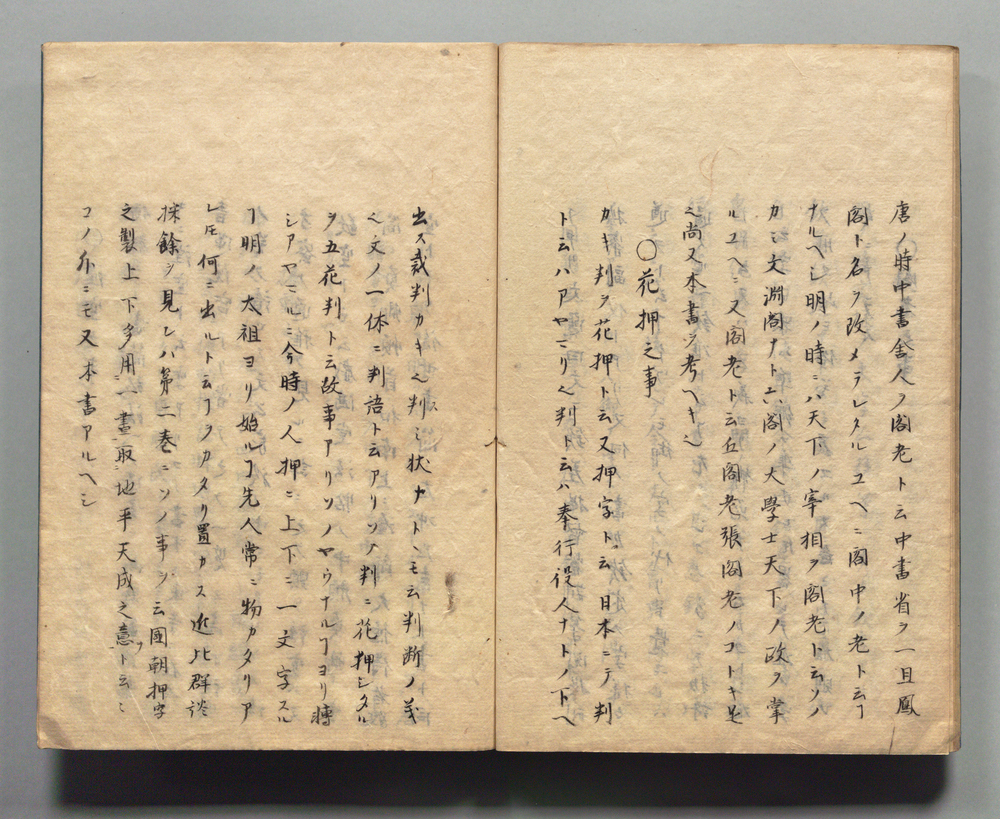 唐ノ時中書舍人ヲ閣老ト云中書省ヲ一旦鳳
閣ト名ヲ改メラレタルユヘニ閣中ノ老ト云ヿ
ナルヘシ明ノ時ニハ天下ノ宰相ヲ閣老ト云ソノ
カミ文淵閣ナト云閣ノ大學士天下ノ政ヲ掌
ルユヘニ又閣老ト云丘閣老張閣老ノコトキ是
也尚又本書ヲ考ヘキ也
○花押之事
カキ判ヲ花押ト云又押字ト云日本ニテ判
ト云ハアヤマリ也判ト云ハ奉行役人ナトノ下ヘ
出ス裁判カキ也判ス状ナトヽモ云判断ノ義
也文ノ一体ニ判語ト云アリソノ判ニ花押シタル
ヲ五花判ト云故事アリソノヤウナルヿヨリ轉
シアヤマルニ今時ノ人押ニ上下ニ一文字スル
ヿ明ノ太祖ヨリ始ルヿ先人常ニ物カタリア
レ𪜈何ニ出ルト云ヿヲカタリ置カス近比群談
採餘ヲ見レハ第二巻ニソノ事ヲ云國朝押字
之製上下多用二一畫取地平天成之意ヲト云ニ
コノ外ニモ又本書アルヘシ